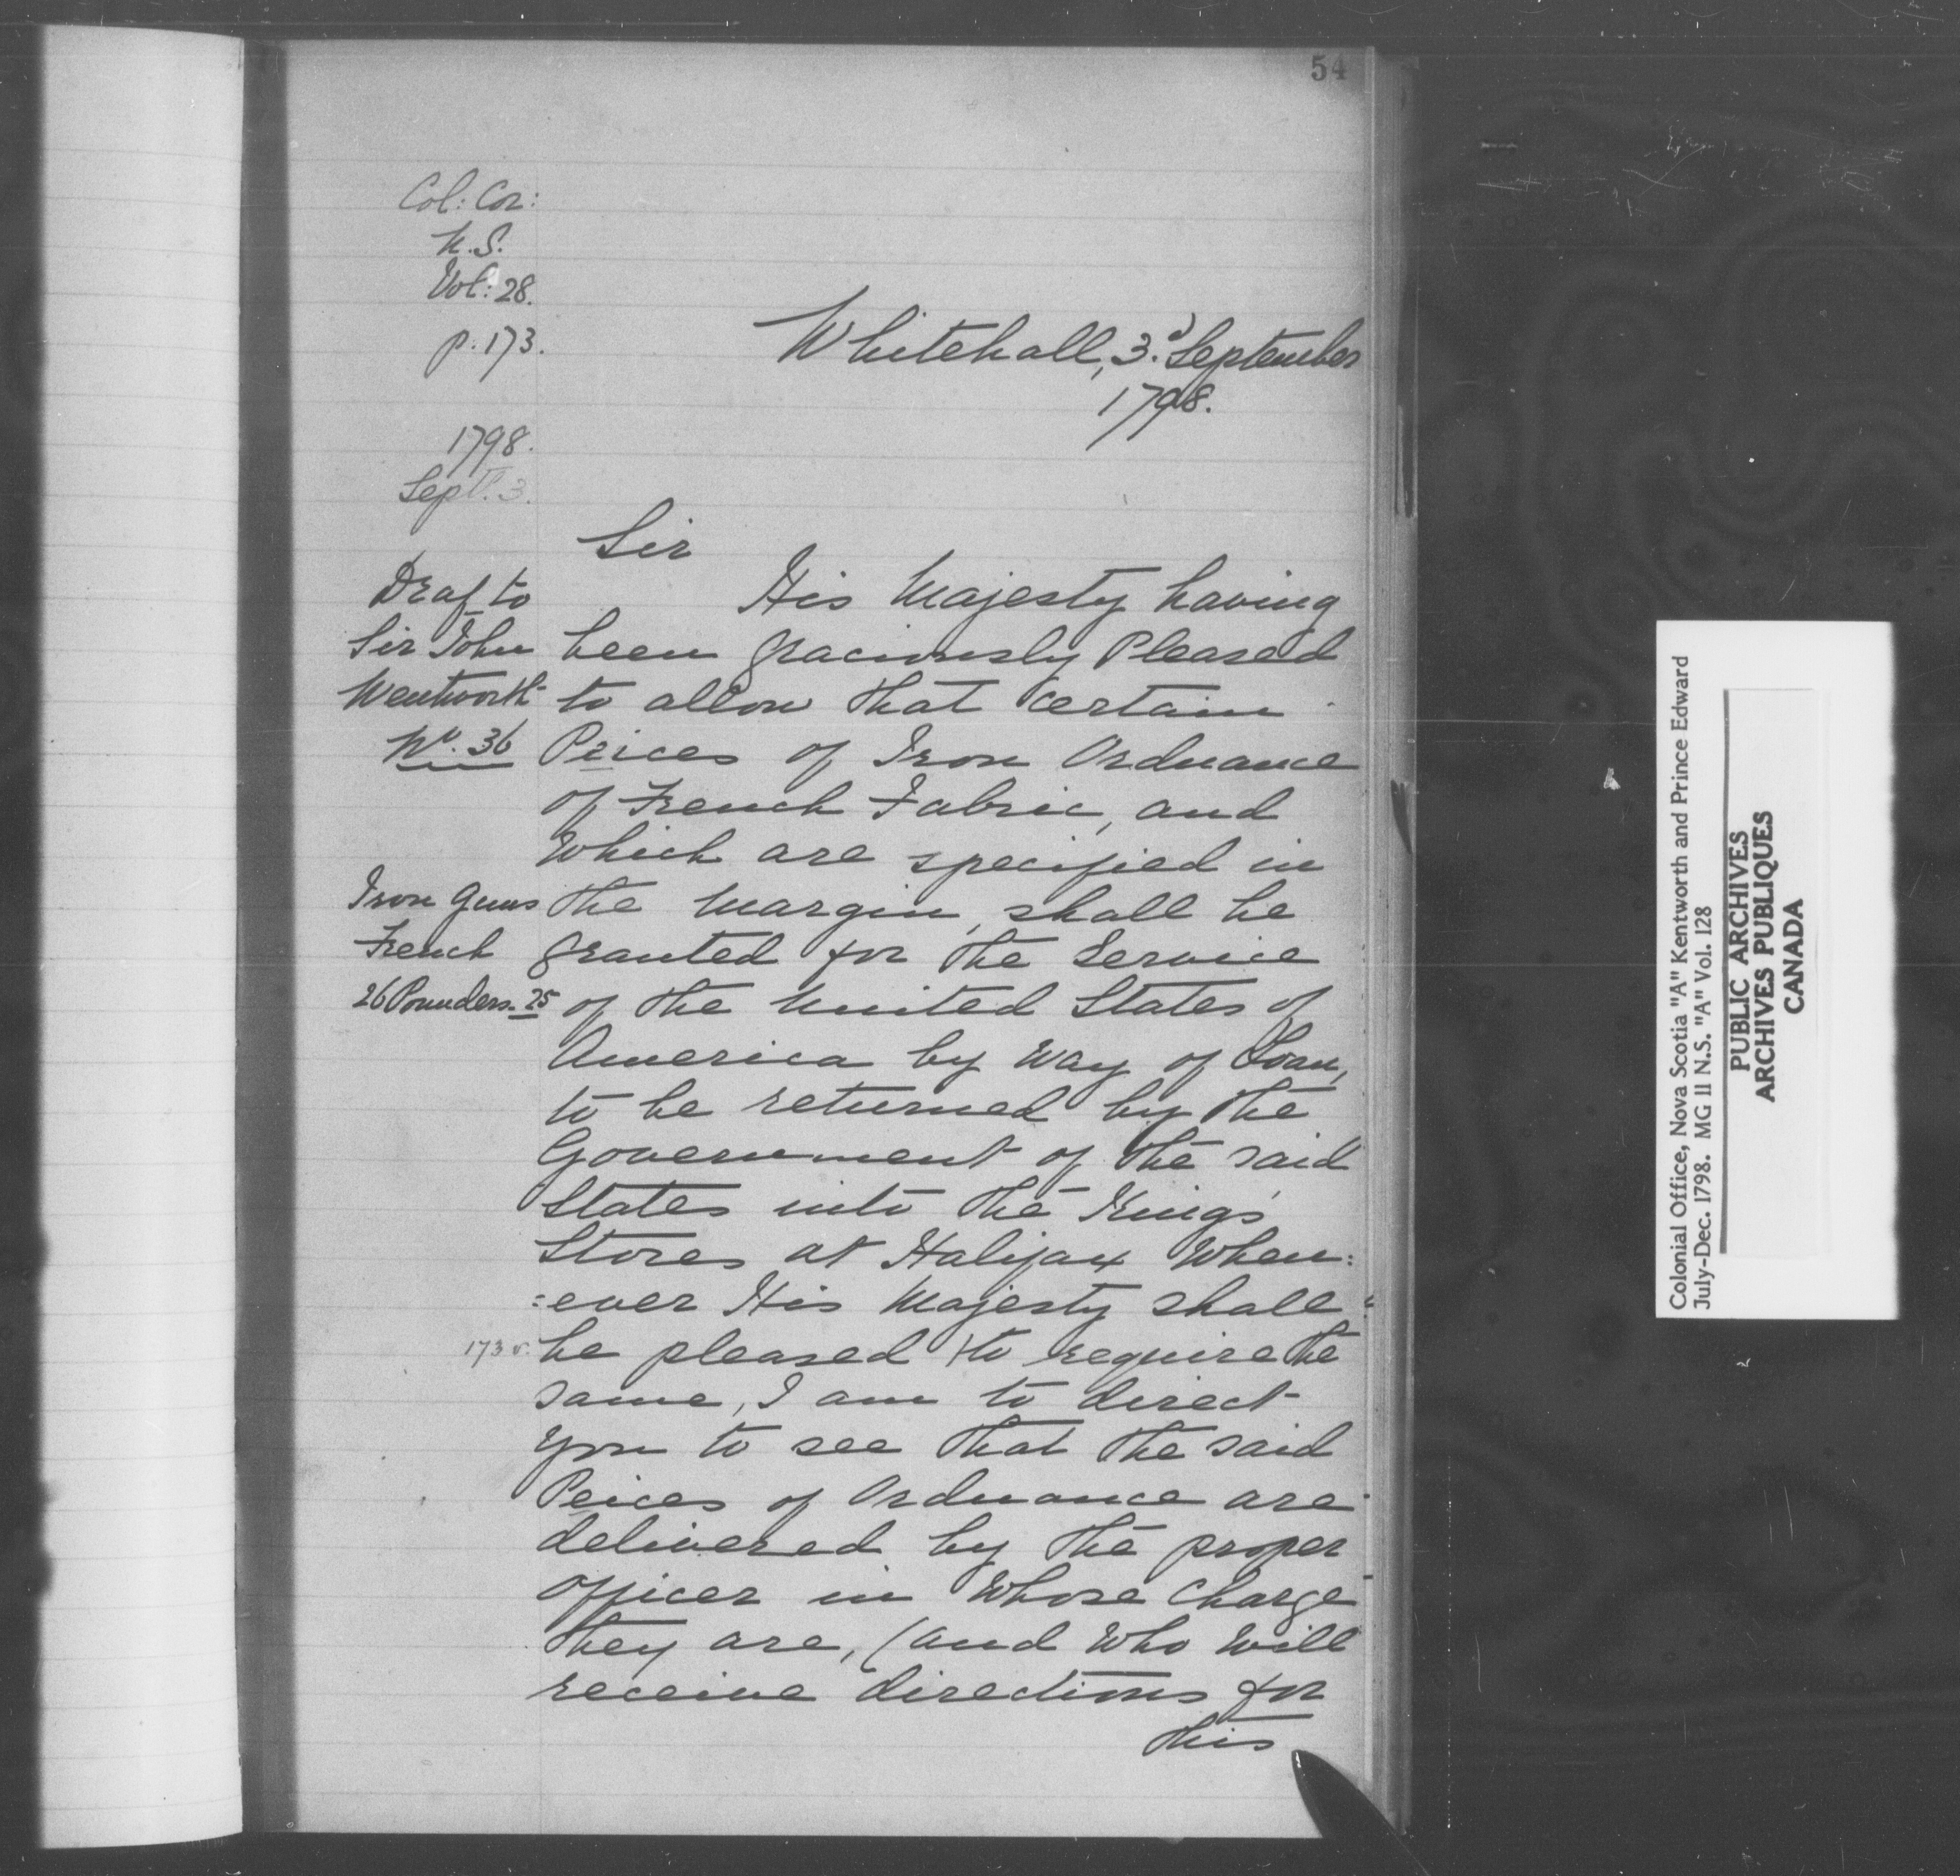 54
Col: Cor:
N.S.
Vol: 28.
p. 173.
Whitehall, 3.d September
1798.
1798.
Sept. 3.
Sir
Draf to
Sir John
Wentworth
No. 36
His Majesty having
been graciously Pleased
to allow that certain
Peices of Iron Ordnance
of French Fabric, and
Which are specified in
Iron Guns
French
26 Pounders. 25
the Margin, shall be
granted for the Service
of the United States of
America by Way of Loan,
to be returned by the
Government of the said
States into the King's
Stores at Halifax When:
:ever His Majesty shall
173 v.
be pleased to require the
same, I am to direct
you to see that the said
Peices of Ordnance are
delivered by the proper
officer in Whose Charge
they are, (and Who Will
receive directions for
this
Colonial Office, Nova Scotia "A" Kentworth and Prince Edward
July-Dec. 1798. MG II N.S. "A" Vol. 128
PUBLIC ARCHIVES
ARCHIVES PUBLIQUES
CANADA